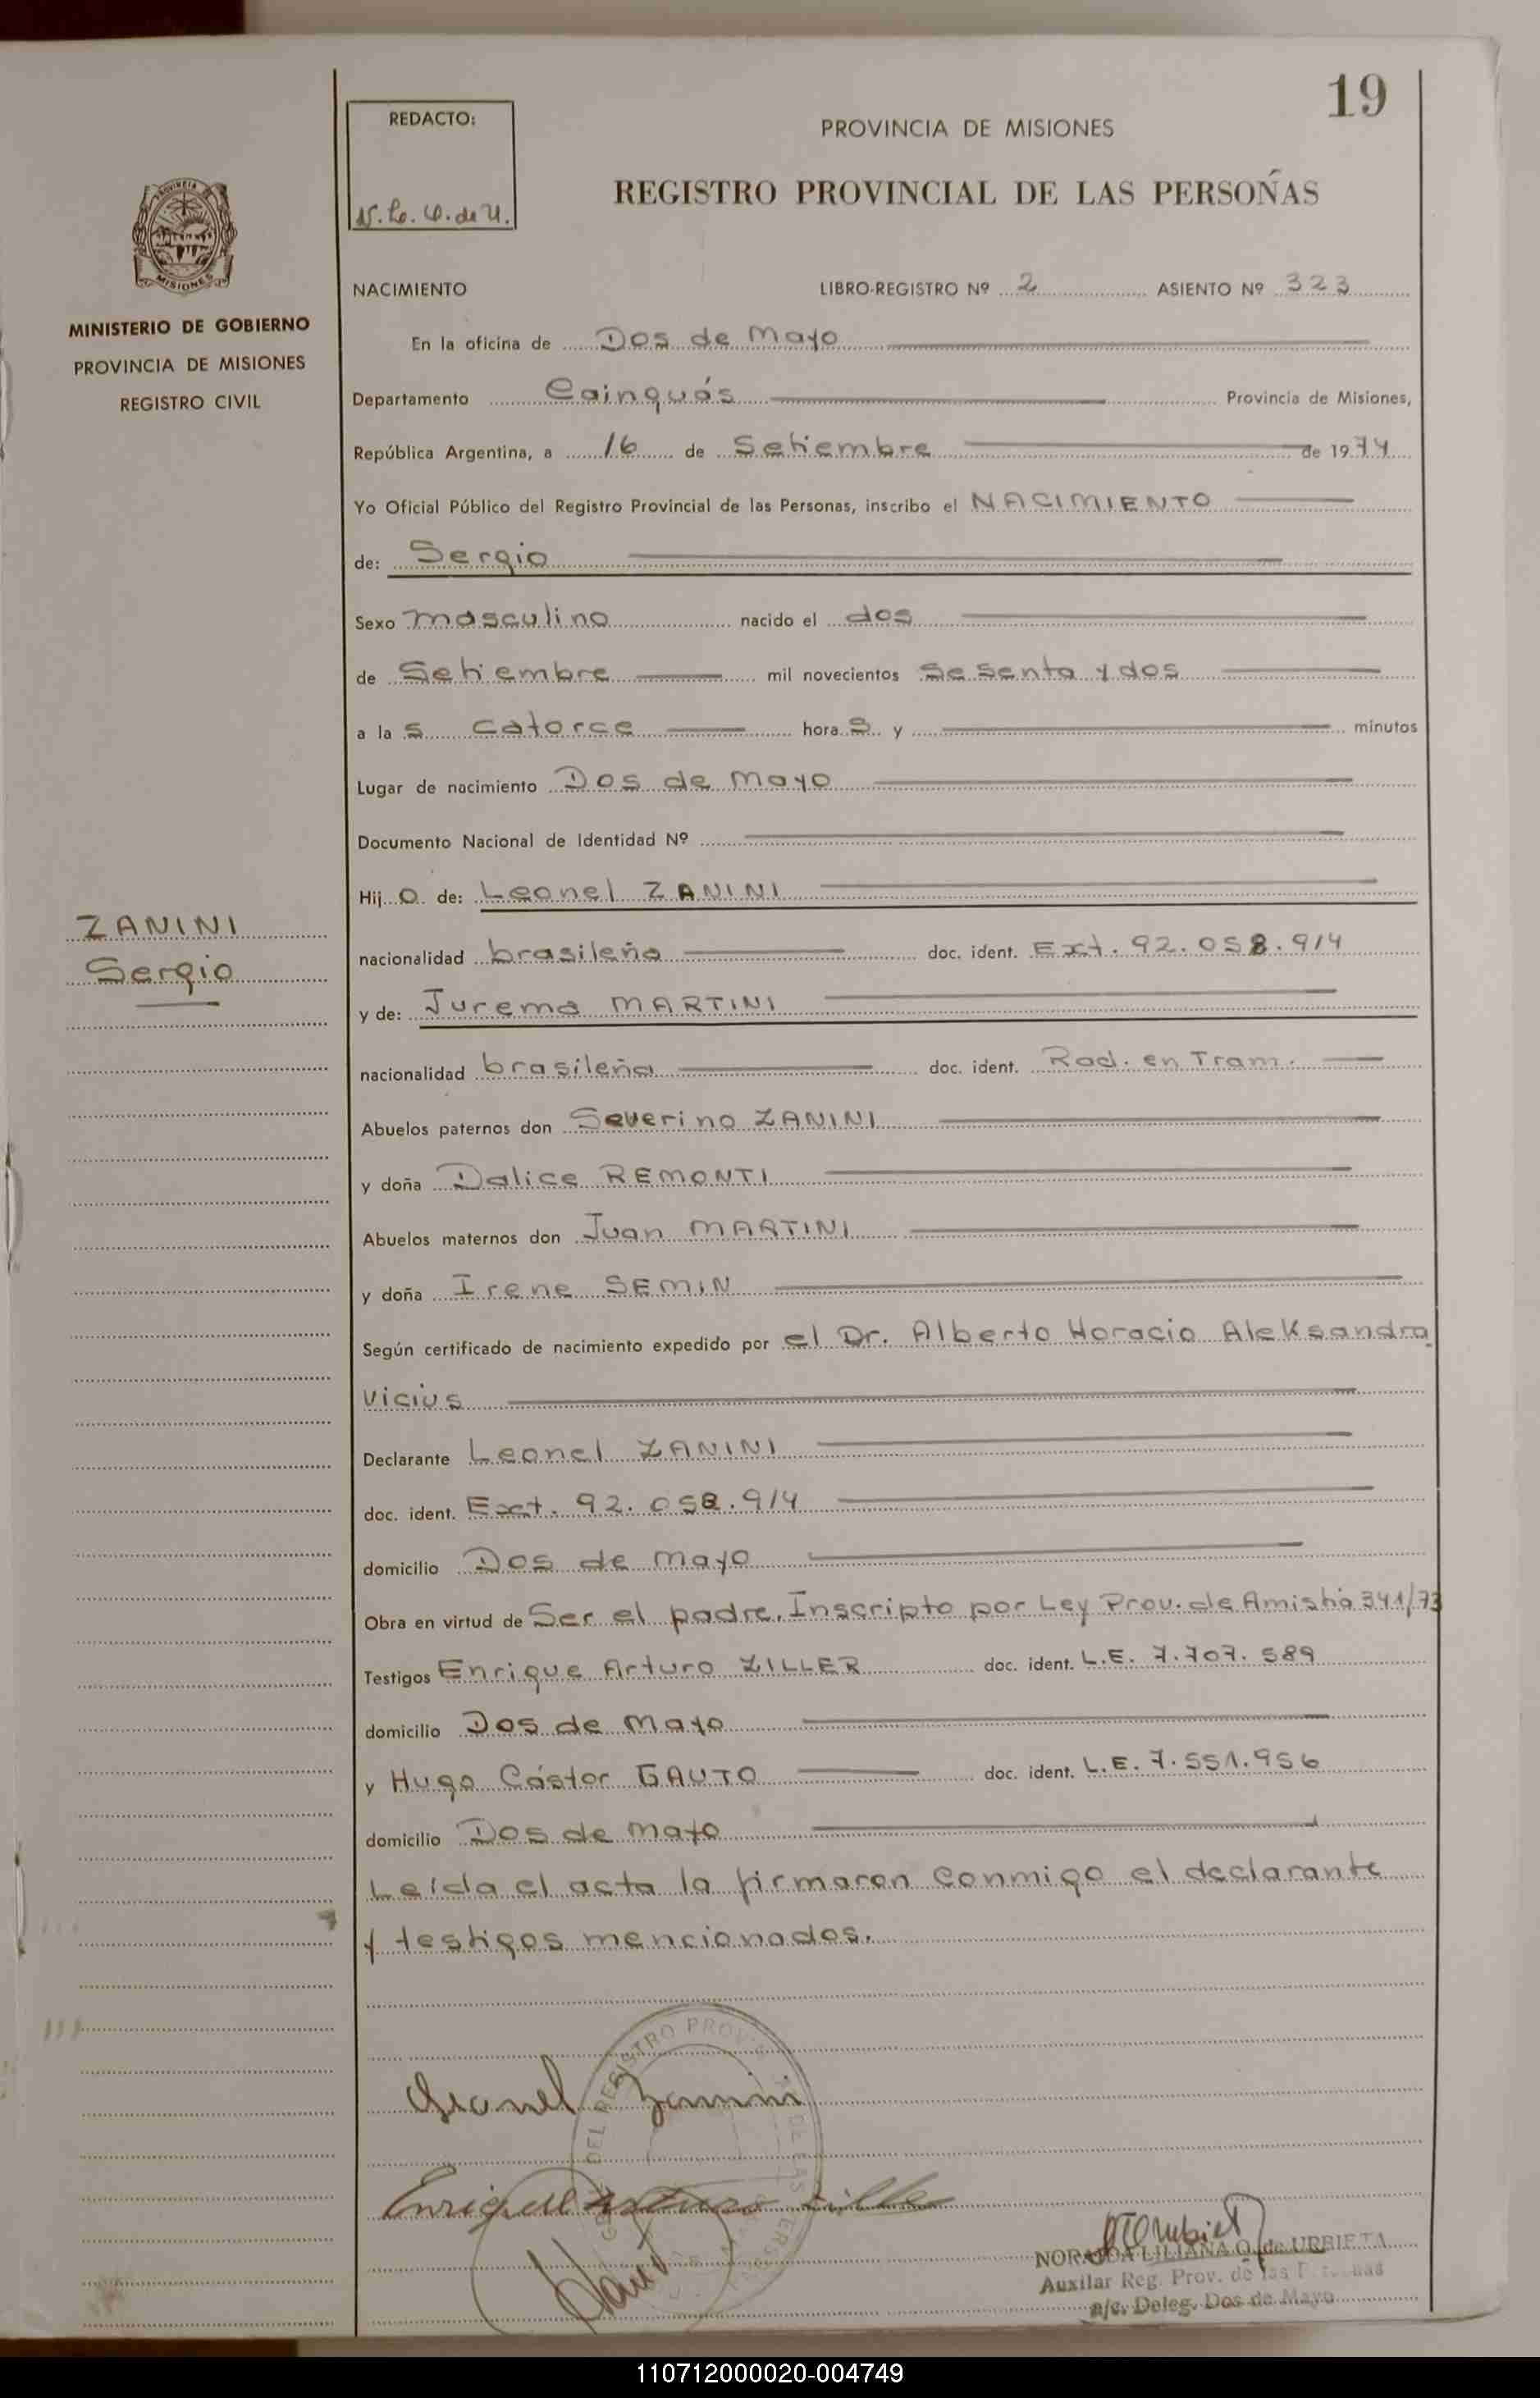 19
REDACTO:
PROVINCIA DE MISIONES
REGISTRO PROVINCIAL DE LAS PERSOÑAS
MISIONES
MINISTERIO DE GOBIERNO
PROVINCIA DE MISIONES
REGISTRO CIVIL
NACIMIENTO LIBRO-REGISTRO Nº 2 ASIENTO Nº 323
En la oficina de Dos de Mayo
Departamento Cainguás Provincia de Misiones,
República Argentina, a 16 de Setiembre de 1974
Yo Oficial Público del Registro Provincial de las Personas, inscribo el NACIMIENTO
de: Sergio
Sexo masculino nacido el dos
de Setiembre mil novecientos sesenta y dos
a las catorce horas y minutos
Lugar de nacimiento Dos de Mayo
Documento Nacional de Identidad Nº
Hijo de: Leonel ZANINI
ZANINI
Sergio
nacionalidad brasileña doc. ident. Ext. 92.058.914
y de: Jurema MARTINI
nacionalidad brasileña doc. ident. Rad. en Tram.
Abuelos paternos don Severino ZANINI
y doña Dalice REMONTI
Abuelos maternos don Juan MARTINI
y doña Irene SEMIN
Según certificado de nacimiento expedido por el Dr. Alberto Horacio Aleksandra
vicius
Declarante Leonel ZANINI
doc. ident. Ext. 92.058.914
domicilio Dos de Mayo
Obra en virtud de Ser el padre. Inscripto por Ley Prov. de Amistia 341/73
Testigos Enrique Arturo ZILLER doc. ident. L.E. 7.707.589
domicilio Dos de Mayo
y Hugo Cástor GAUTO doc. ident. L.E. 7.551.956
domicilio Dos de Mayo
Leída el acta la firmaron conmigo el declarante
y testigos mencionados.
Leonel Zanini
Enrique Arturo Ziller
NORA LILIANA O. de URBIETA
Auxilar Reg. Prov. de las
a/c. Deleg. Dos de Mayo
110712000020-004749